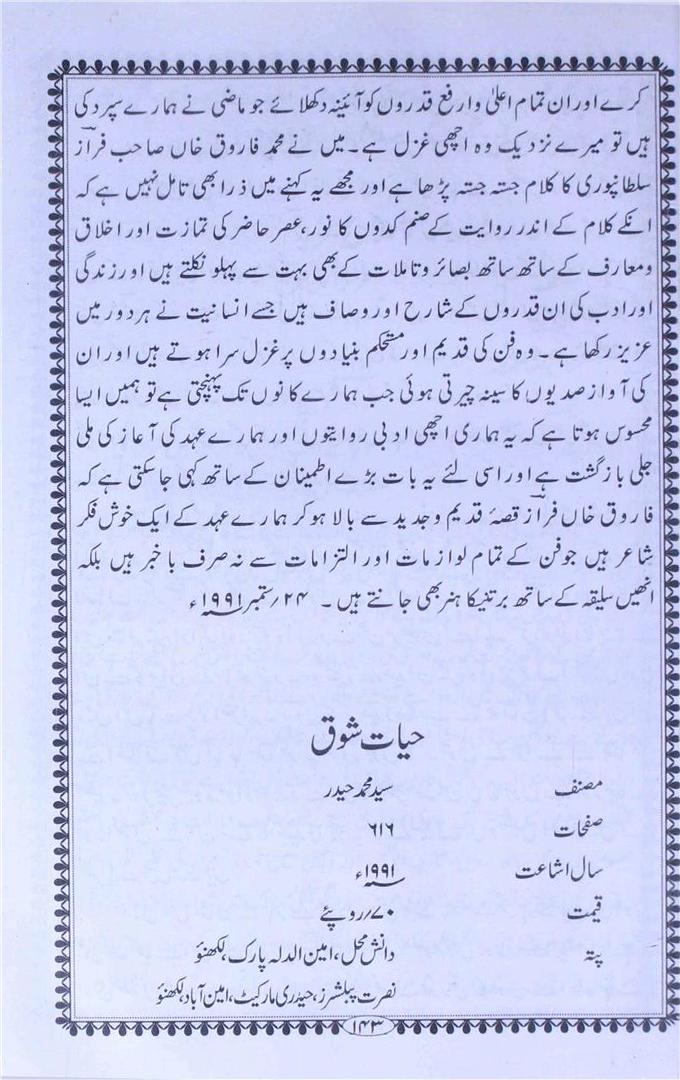 کرے اور ان تمام اعلیٰ وارفع قدروں کو آئینہ دکھلائے جو ماضی نے ہمارے سپرد کی
ہیں تو میرے نزدیک وہ اچھی غزل ہے۔ میں نے محمد فاروق خاں صاحب فرازؔ
سلطانپوری کا کلام جستہ جستہ پڑھا ہے اور مجھے یہ کہنے میں ذرا بھی تامل نہیں ہے کہ
انکے کلام کے اندر روایت کے صنم کدوں کا نور، عصر حاضر کی تمازت اور اخلاق
ومعارف کے ساتھ ساتھ بصائر وتاملات کے بھی بہت سے پہلو نکلتے ہیں اور زندگی
اور ادب کی ان قدروں کے شارح اور وصاف ہیں جسے انسانیت نے ہر دور میں
عزیز رکھا ہے۔ وہ فن کی قدیم اور مستحکم بنیادوں پر غزل سرا ہوتے ہیں اور ان
کی آواز صدیوں کا سینہ چیرتی ہوئی جب ہمارے کانوں تک پہنچتی ہے تو ہمیں ایسا
محسوس ہوتا ہے کہ یہ ہماری اچھی ادبی روایتوں اور ہمارے عہد کی آغاز کی ملی
جلی بازگشت ہے اور اسی لئے یہ بات بڑے اطمینان کے ساتھ کہی جاسکتی ہے کہ
فاروق خاں فرازؔ قصۂ قدیم وجدید سے بالا ہوکر ہمارے عہد کے ایک خوش فکر
شاعر ہیں جوفن کے تمام لوازمات اور التزامات سے نہ صرف باخبر ہیں بلکہ
انھیں سلیقہ کے ساتھ برتنیکا ہنر بھی جانتے ہیں۔ ۲۴؍ستمبر ۱۹۹۱ء
حیات شوق
مصنف سید محمد حیدر
صفحات ۶۱۶
سال اشاعت ۱۹۹۱ء
قیمت ۷۰؍روپئے
پتہ دانش محل، امین الدلہ پارک، لکھنؤ
نصرت پبلشرز، حیدری مارکیٹ، امین آباد، لکھنؤ
۱۴۳